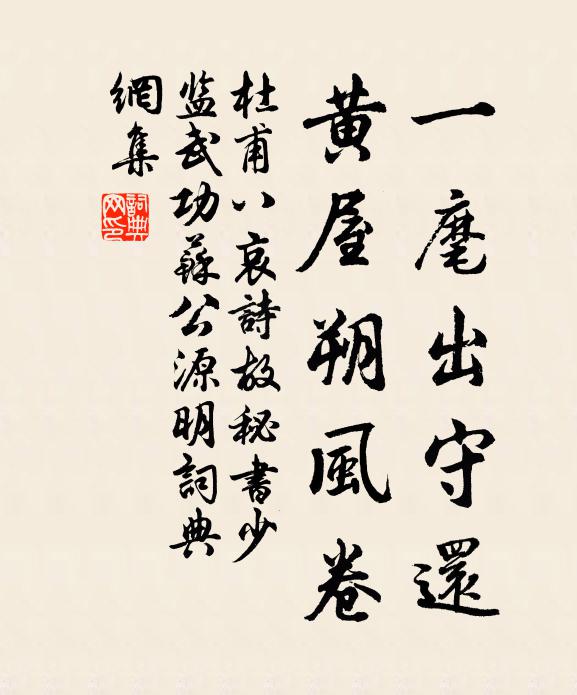 一麾出守還
黃屋朔風卷
杜甫八哀詩故秘書少
監武功蘇公源明詞典
網集
詞典
网印